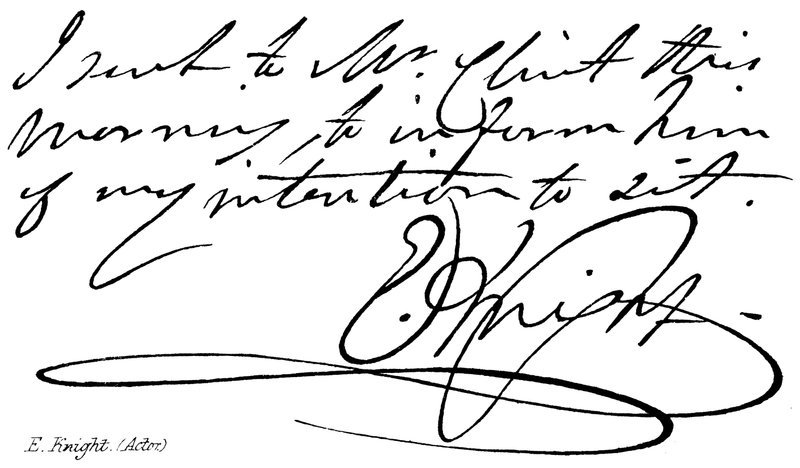 I sent to Mr. Clint this
morning, to inform him
of my intention to sit.
E. Knight -
E. Knight. (Actor.)